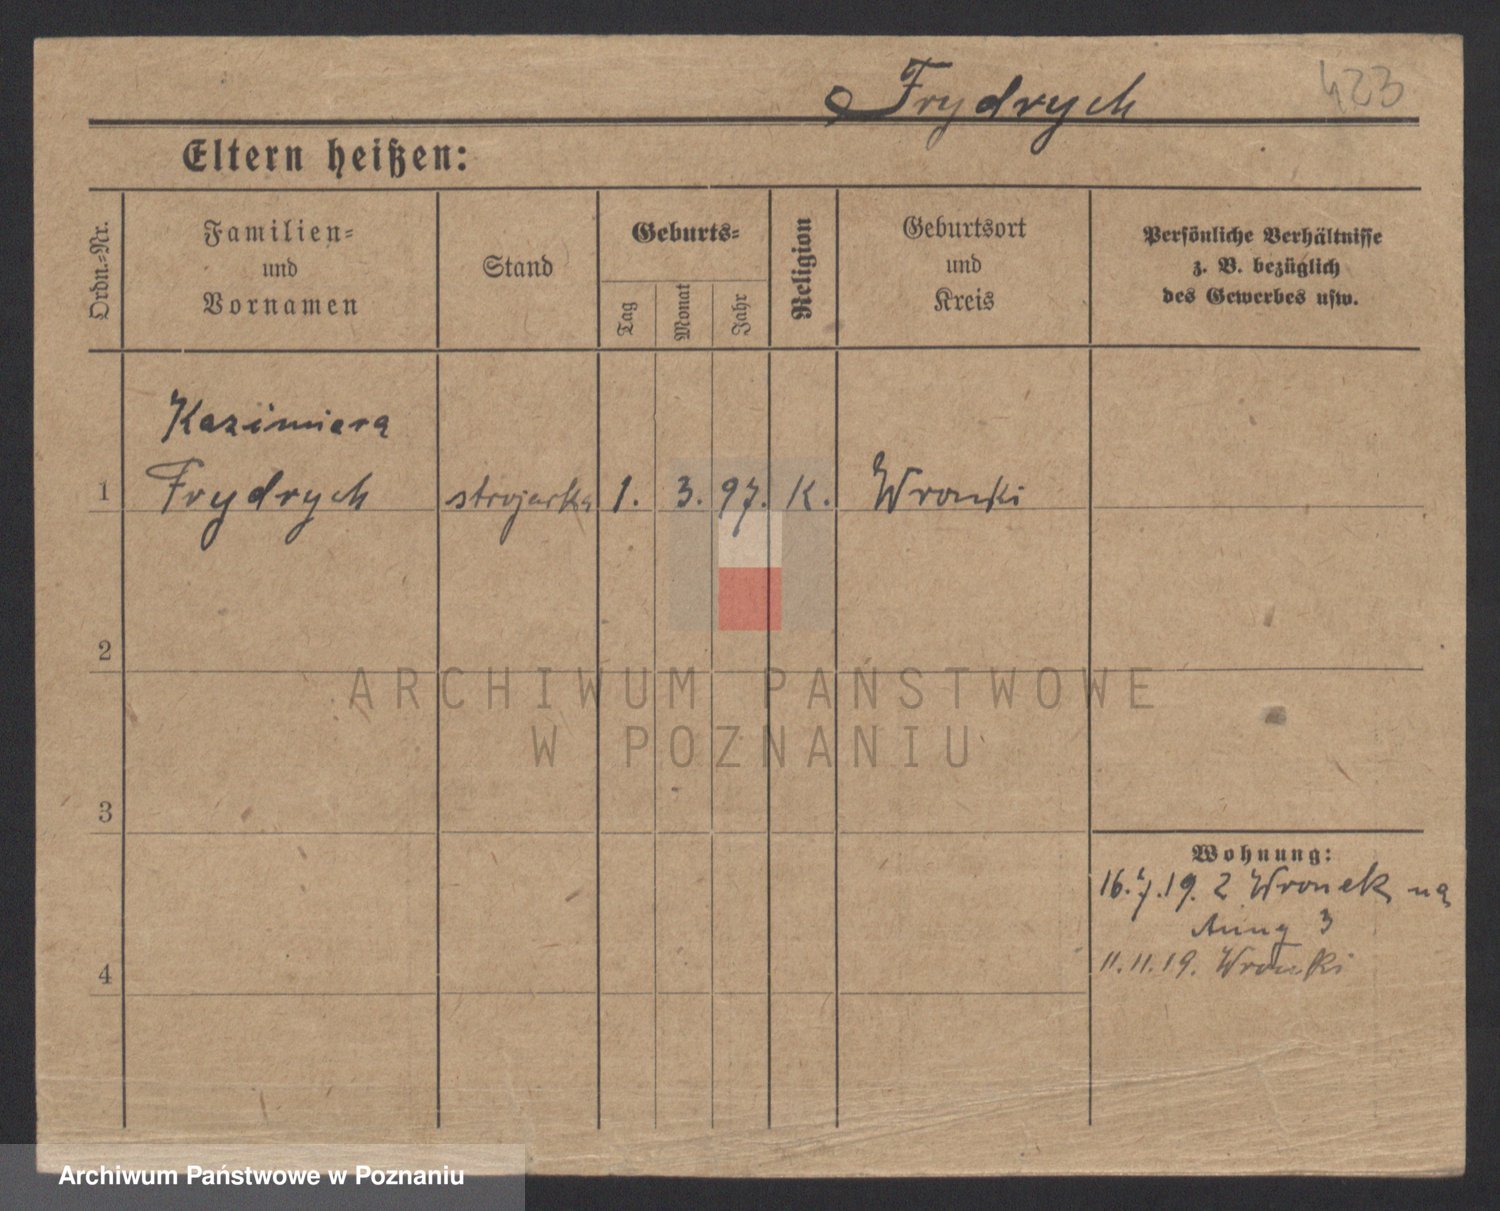 Frydrych
423
Eltern heißen:
Ordn.-Nr.
Familien-
und
Vornamen
Stand
Geburts-
Tag
Monat
Jahr
Religion
Geburtsort
und
Kreis
Persönliche Verhältnisse
z. B. bezüglich
des Gewerbes usw.
Kazimiera
1 Frydrych strojarka 1. 3. 97. K. Wronki
2
ARCHIWUM PAŃSTWOWE
W POZNANIU
3
Wohnung:
16.7.19. z Wronek na
3
11.11.19. Wronki
4
Archiwum Państwowe w Poznaniu